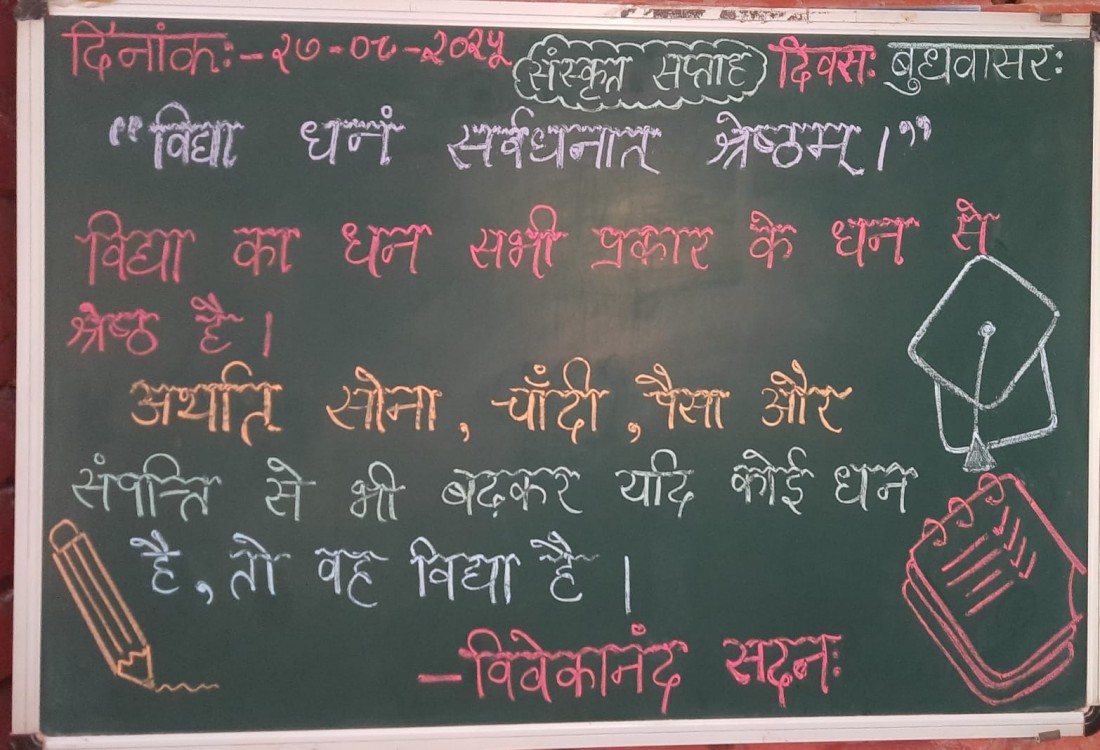 दिनांकः-२७-०८-२०२५ संस्कृत सप्ताह दिवसः बुधवासरः
“विद्या धनं सर्वधनात् श्रेष्ठम्।”
विद्या का धन सभी प्रकार के धन से
श्रेष्ठ है।
अर्थात् सोना, चाँदी, पैसा और
संपत्ति से भी बढ़कर यदि कोई धन
है, तो वह विद्या है।
-विवेकानंद सदनः